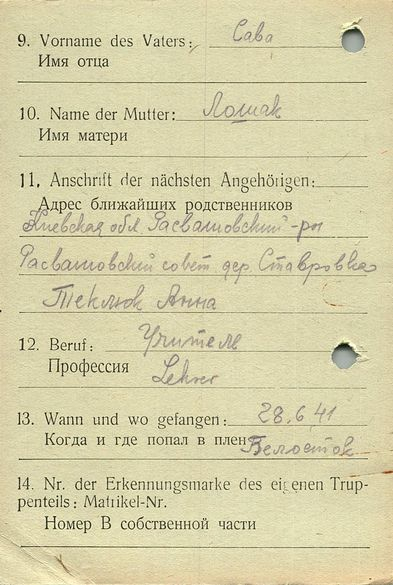 9. Vorname des Vaters: Сава
Имя отца
10. Name der Mutter: Лошак
Имя матери
11. Anschrift der nächsten Angehörigen:
Адрес ближайших родственников
Киевская обл. Расватовский р-н
Расватовский совет дер. Ставровка
Теклюк Анна
12. Beruf: Учитель
Профессия Lehrer
13. Wann und wo gefangen: 28.6 41
Когда и где попал в плен Белосток
14. Nr. der Erkennungsmarke des eigenen Trup-
penteils: Matrikel-Nr.
Номер В собственной части